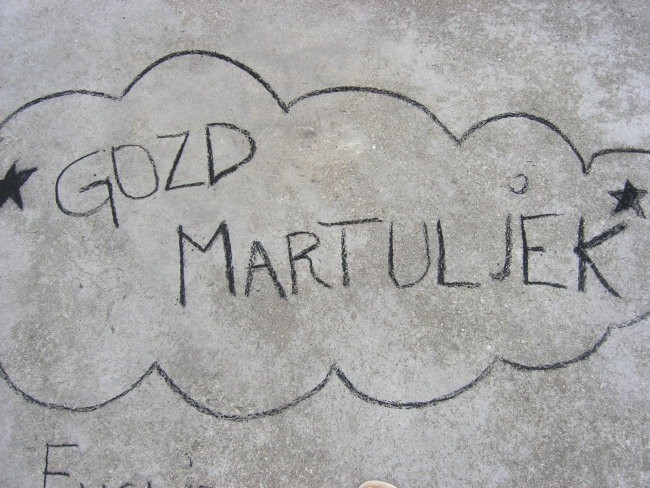 GOZD
MARTULJEK